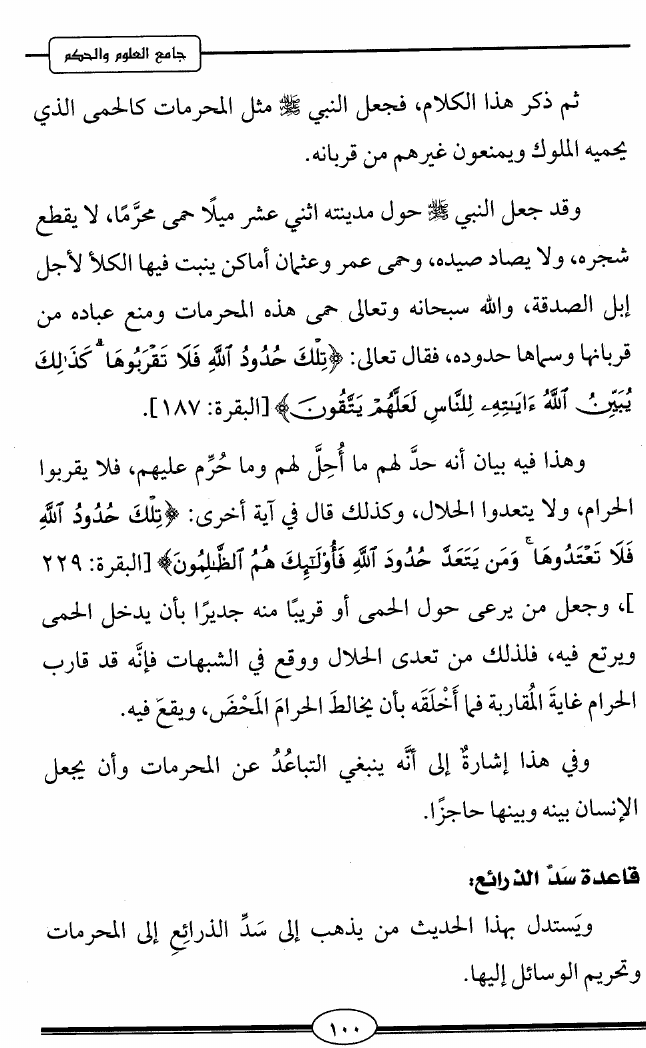 جامع العلوم والحكم
ثم ذكر هذا الكلام، فجعل النبي ﷺ مثل المحرمات كالحمى الذي
يحميه الملوك ويمنعون غيرهم من قربانه.
وقد جعل النبي ﷺ حول مدينته اثني عشر ميلًا حمى محرَّمًا، لا يقطع
شجره، ولا يصاد صيده، وحمى عمر وعثمان أماكن ينبت فيها الكلأ لأجل
إبل الصدقة، والله سبحانه وتعالى حمى هذه المحرمات ومنع عباده من
قربانها وسماها حدوده، فقال تعالى: ﴿تِلْكَ حُدُودُ ٱللَّهِ فَلَا تَقْرَبُوهَا ۗ كَذَٰلِكَ
يُبَيِّنُ ٱللَّهُ ءَايَٰتِهِۦ لِلنَّاسِ لَعَلَّهُمْ يَتَّقُونَ﴾ [البقرة: ١٨٧].
وهذا فيه بيان أنه حدَّ لهم ما أُحِلَّ لهم وما حُرِّم عليهم، فلا يقربوا
الحرام، ولا يتعدوا الحلال، وكذلك قال في آية أخرى: ﴿تِلْكَ حُدُودُ ٱللَّهِ
فَلَا تَعْتَدُوهَا ۚ وَمَن يَتَعَدَّ حُدُودَ ٱللَّهِ فَأُو۟لَٰٓئِكَ هُمُ ٱلظَّٰلِمُونَ﴾ [البقرة: ٢٢٩
]، وجعل من يرعى حول الحمى أو قريبًا منه جديرًا بأن يدخل الحمى
ويرتع فيه، فلذلك من تعدى الحلال ووقع في الشبهات فإنَّه قد قارب
الحرام غايةَ المُقاربة فما أَخْلَقَه بأن يخالطَ الحرامَ المَحْضَ، ويقعَ فيه.
وفي هذا إشارةٌ إلى أنَّه ينبغي التباعُدُ عن المحرمات وأن يجعل
الإنسان بينه وبينها حاجزًا.
قاعدة سَدّ الذرائع:
ويَستدل بهذا الحديث من يذهب إلى سَدِّ الذرائِعِ إلى المحرمات
وتحريم الوسائل إليها.
١٠٠